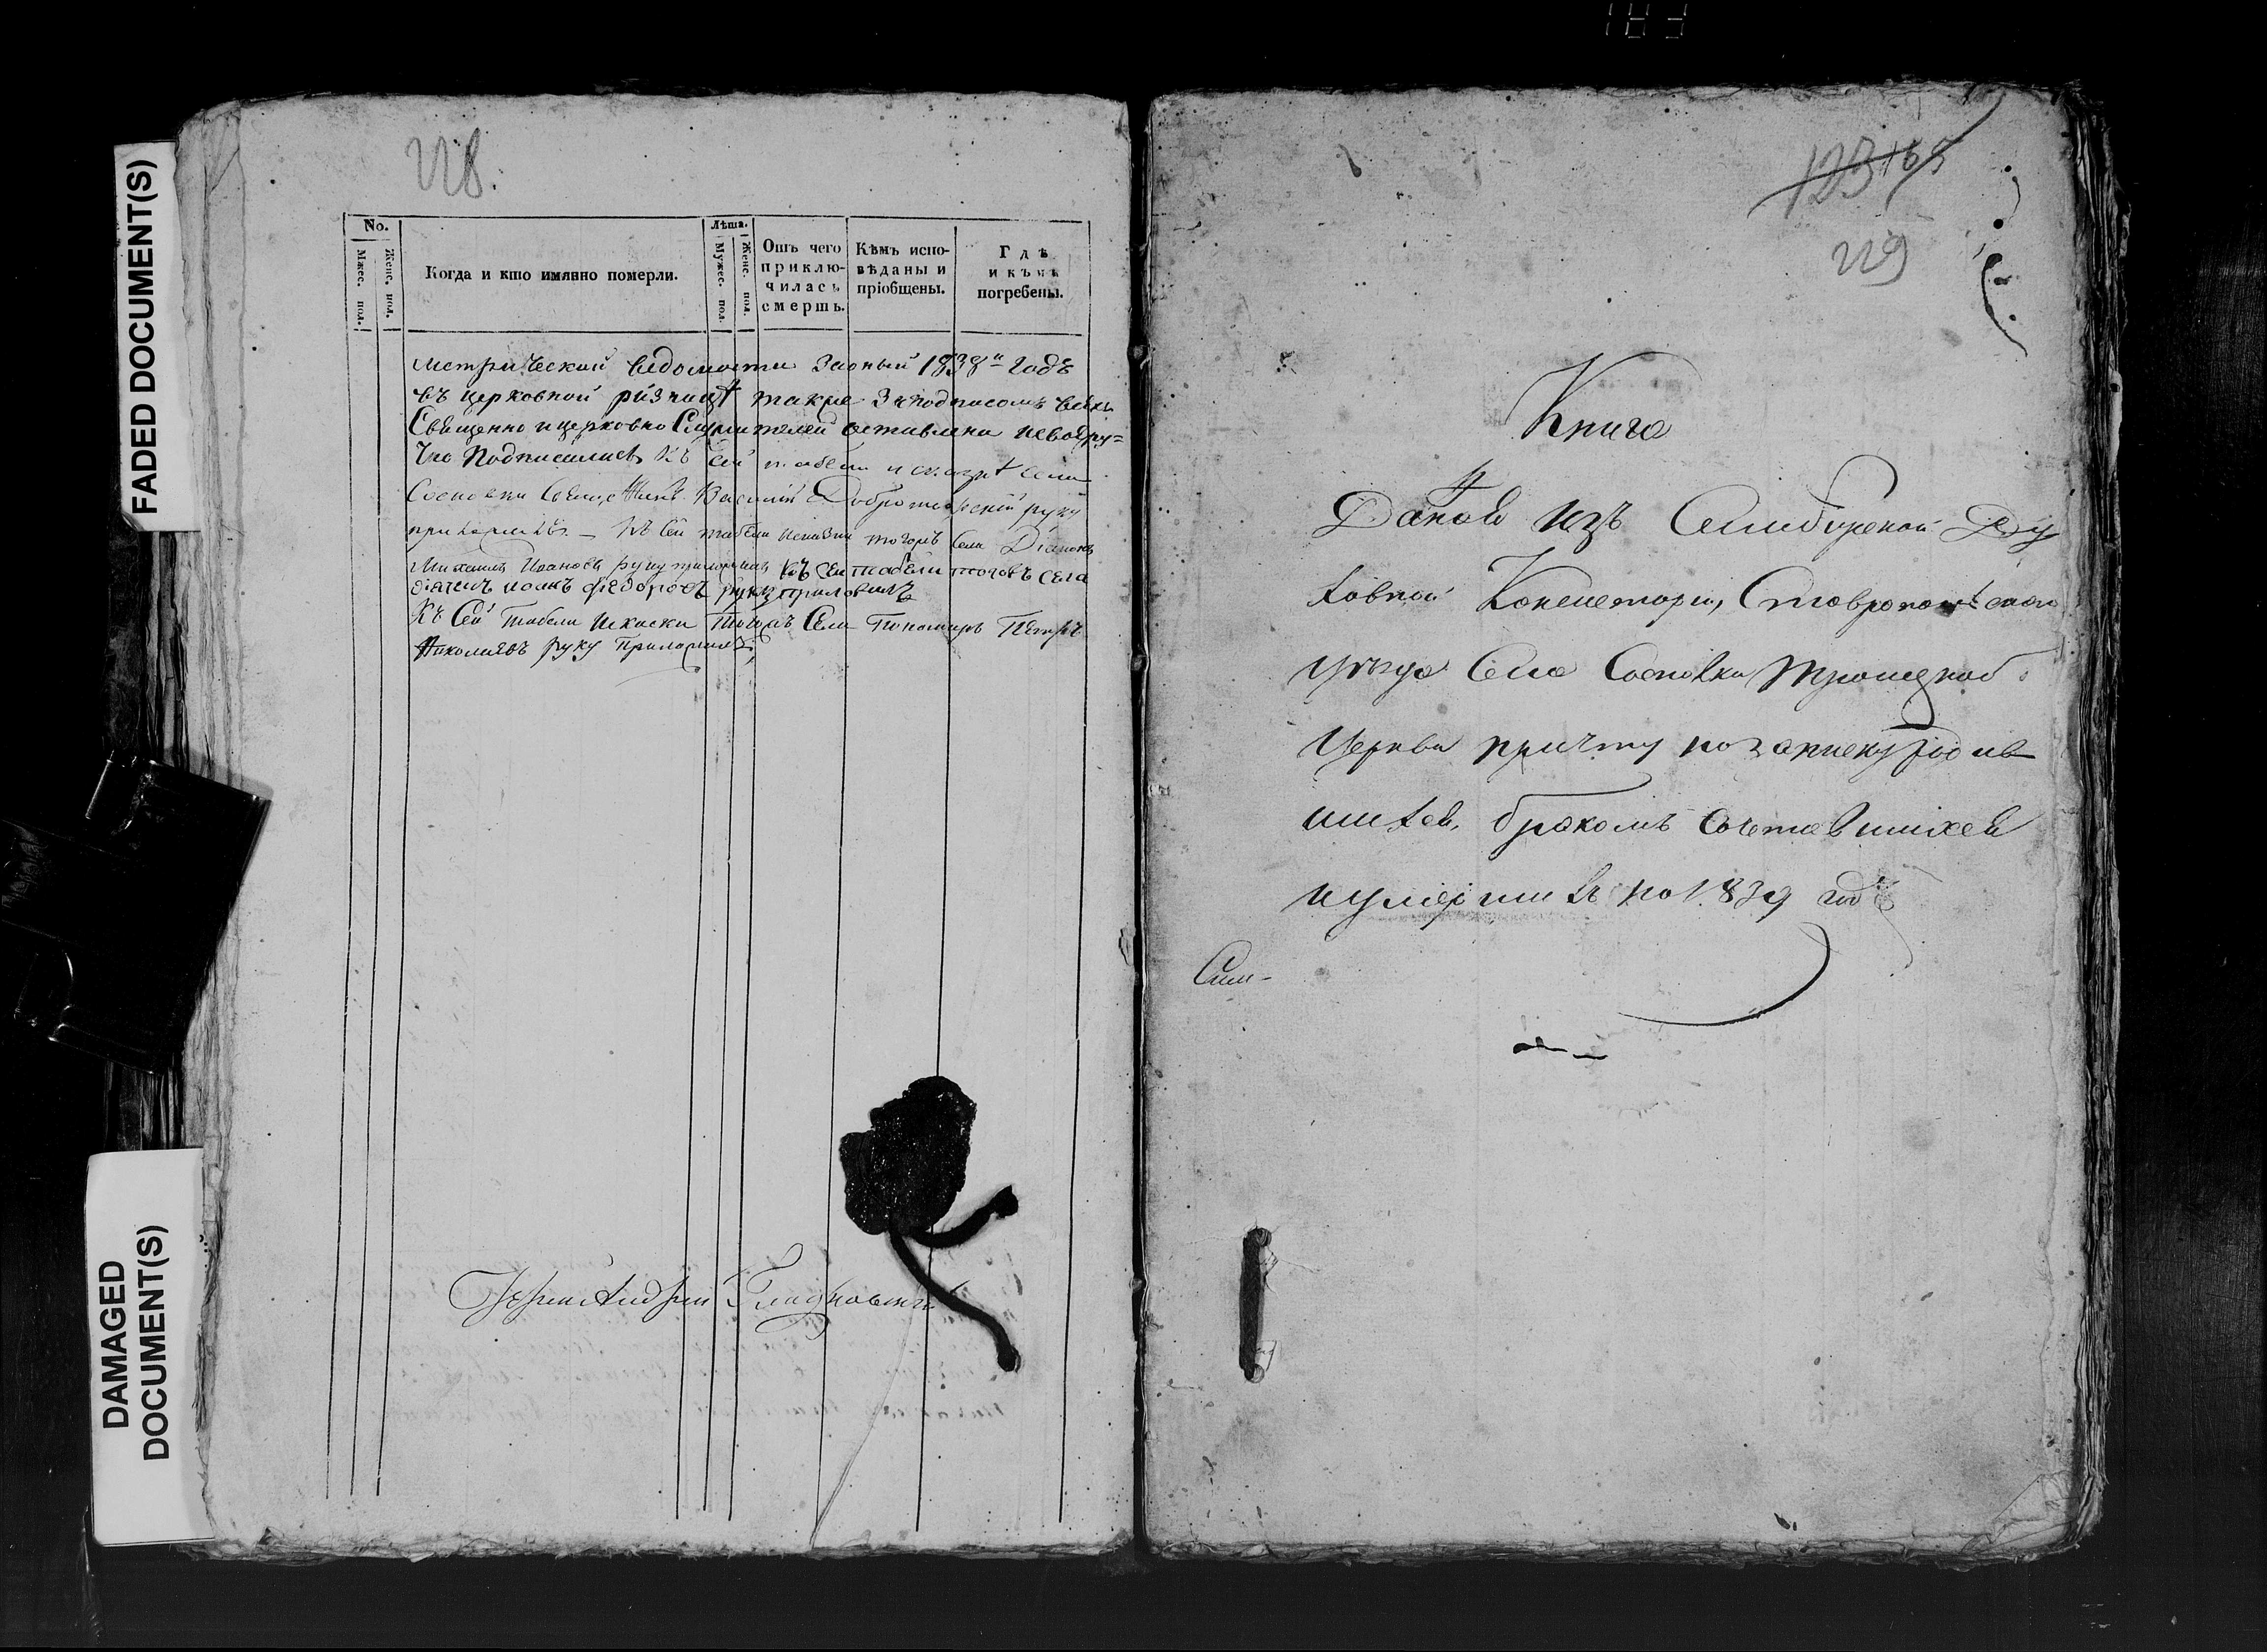 FADED DOCUMENT(S)
DAMAGED
DOCUMENT(S)
228.
No.
Мжес. пол.
Женс. пол.
Когда и кто имянно померли.
Лѣта.
Мужес. пол.
Женс. пол.
Отъ чего
приклю-
чилась
смерть.
Кѣмъ испо-
вѣданы и
пріобщены.
Гдѣ
и кѣмъ
погребены.
Метрической ведомости заоный 1838й годъ
въ церковной ризницѣ такие за подписомъ всехъ
Священно и церковно Служителей оставлена
Что Подписались Къ сей табели и
Сосновки Василий Доброт руку
приложилъ. — Къ сей табели тогожъ села Діаконъ
Михаилъ Ивановъ руку приложилъ Къ сеи табели тогожъ села
діячекъ иоанъ федоровъ руку приложилъ
Къ Сей Табели Тогожъ Села Пономарь Петръ
Николаевъ руку Приложилъ
123 165
229
Книга
Данная изъ Симбирской Ду
ховной Консистории, Ставропольскаго
уѣзда Села Сосновки Троицкой
Церкви причту на записку родив
шихся, бракомъ сочетавшихся
и умершихъ на 1839 годъ
Сим-